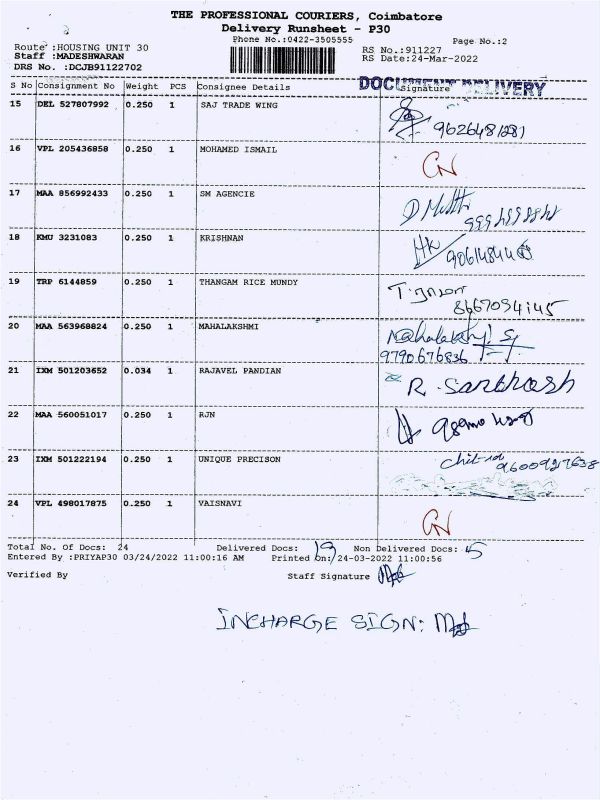 THE PROFESSIONAL COURIERS, Coimbatore
Delivery Runsheet - P30
Phone No.:0422-3505555
Page No.:2
Route :HOUSING UNIT 30
RS No.:911227
Staff :MADESHWARAN
RS Date:24-Mar-2022
DRS No. :DCJB91122702
DOCUMENT DELIVERY
S No Consignment No Weight PCS Consignee Details Signature
15 DEL 527807992 0.250 1 SAJ TRADE WING
9626481281
16 VPL 205436858 0.250 1 MOHAMED ISMAIL
CN
17 MAA 856992433 0.250 1 SM AGENCIE
18 KMU 3231083 0.250 1 KRISHNAN
19 TRP 6144859 0.250 1 THANGAM RICE MUNDY
8667094145
20 MAA 563968824 0.250 1 MAHALAKSHMI
9790676836
21 IXM 501203652 0.034 1 RAJAVEL PANDIAN
R. Santhosh
22 MAA 560051017 0.250 1 RJN
23 IXM 501222194 0.250 1 UNIQUE PRECISON
9600927638
24 VPL 498017875 0.250 1 VAISNAVI
CN
Total No. Of Docs: 24 Delivered Docs: 19 Non Delivered Docs: 5
Entered By :PRIYAP30 03/24/2022 11:00:16 AM Printed On:/24-03-2022 11:00:56
Verified By Staff Signature
INCHARGE SIGN: